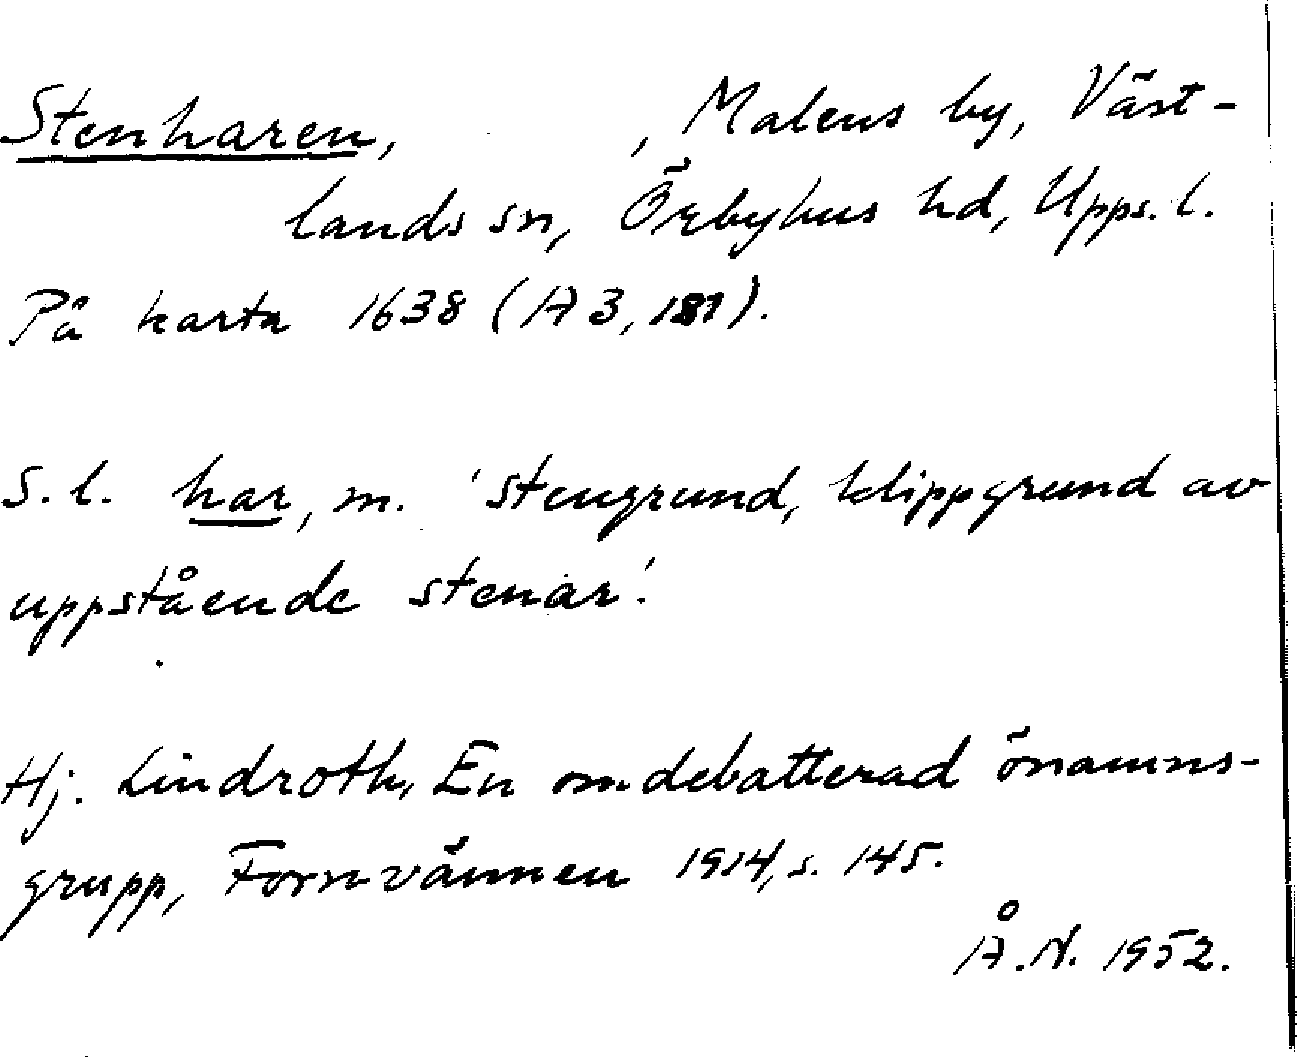 Stenharen, , Malens by, Väst-
lands sn, Örbyhus hd, Upps. l.
På karta 1638 (A 3, 181).
S. l. har, m. 'stengrund, klippgrund av
uppstående stenar'.
Hj. Lindroth, En omdebatterad önamns-
grupp, Fornvännen 1914, s. 145.
Å.N. 1952.